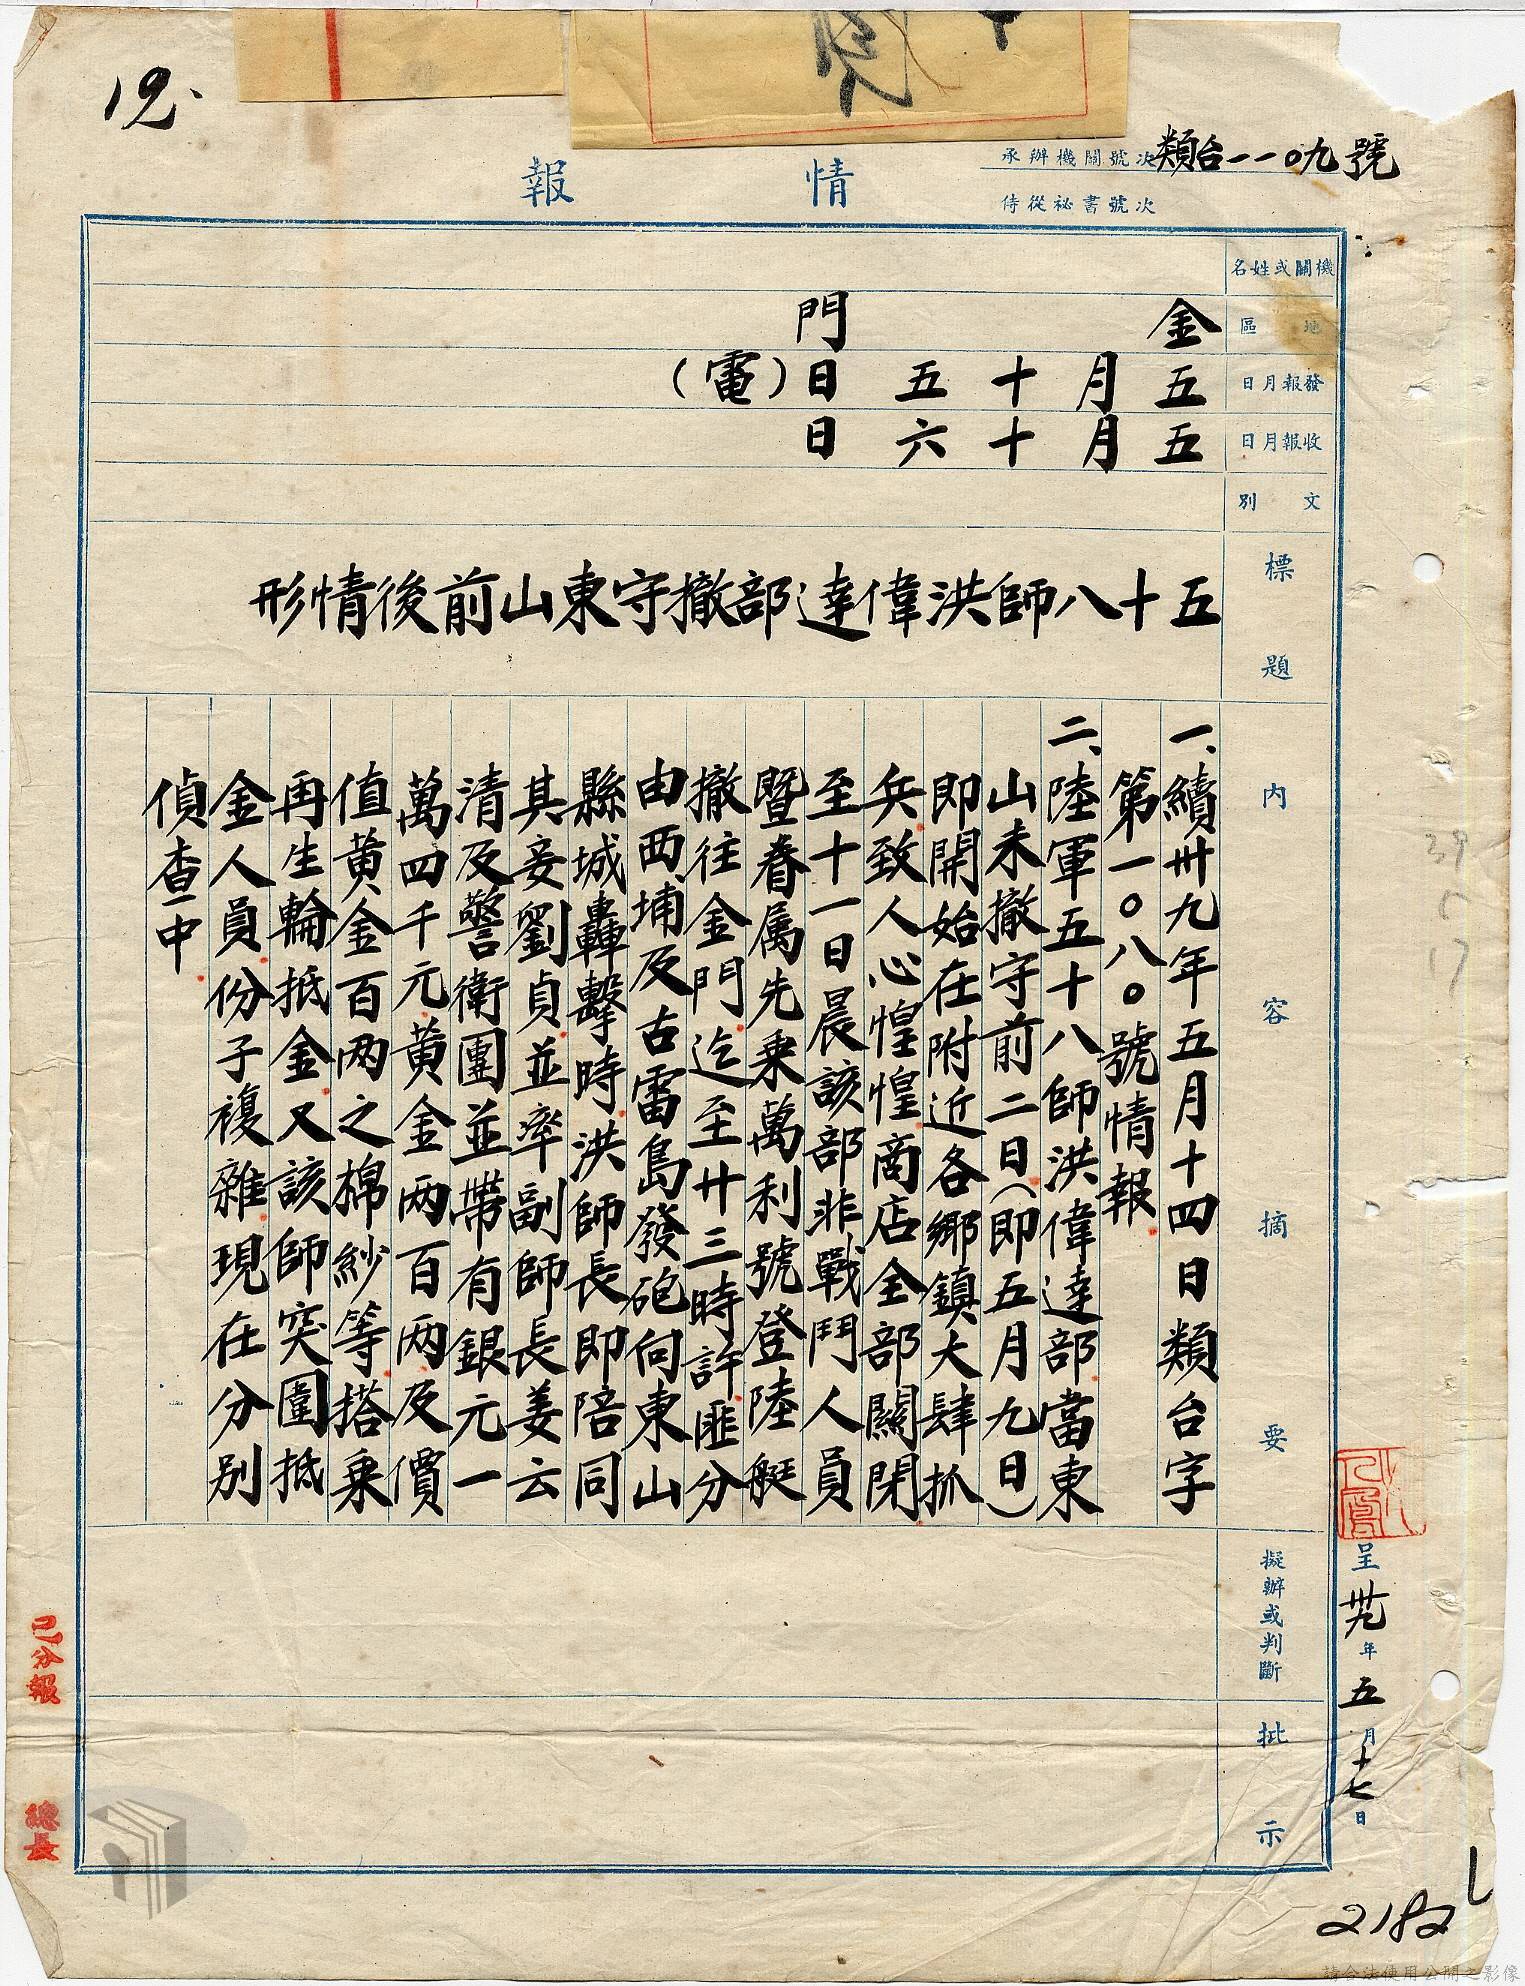 情報
承辦機關號次 類台一一〇九號
侍從祕書號次
機關或姓名
地區 金門
發報月日 五月十五日(電)
收報月日 五月十六日
文別
標題 五十八師洪偉達部撤守東山前後情形
內容摘要
一、續卅九年五月十四日類台字
第一〇八〇號情報
二、陸軍五十八師洪偉達部當東
山未撤守前二日(即五月九日)
即開始在附近各鄉鎮大肆抓
兵致人心惶惶商店全部關閉
至十一日晨該部非戰鬥人員
暨眷屬先乘萬利號登陸艇
撤往金門迄至廿三時許匪分
由西埔及古雷島發砲向東山
縣城轟擊時洪師長即陪同
其妾劉貞並率副師長姜云
清及警衛團並帶有銀元一
萬四千元黃金兩百兩及價
值黃金百兩之棉紗等搭乘
再生輪抵金又該師突圍抵
金人員份子複雜現在分別
偵查中
擬辦或判斷
批示
呈卅九年五月十七日
已分報
總長
39
5
17
2182
請合法使用公開之影像